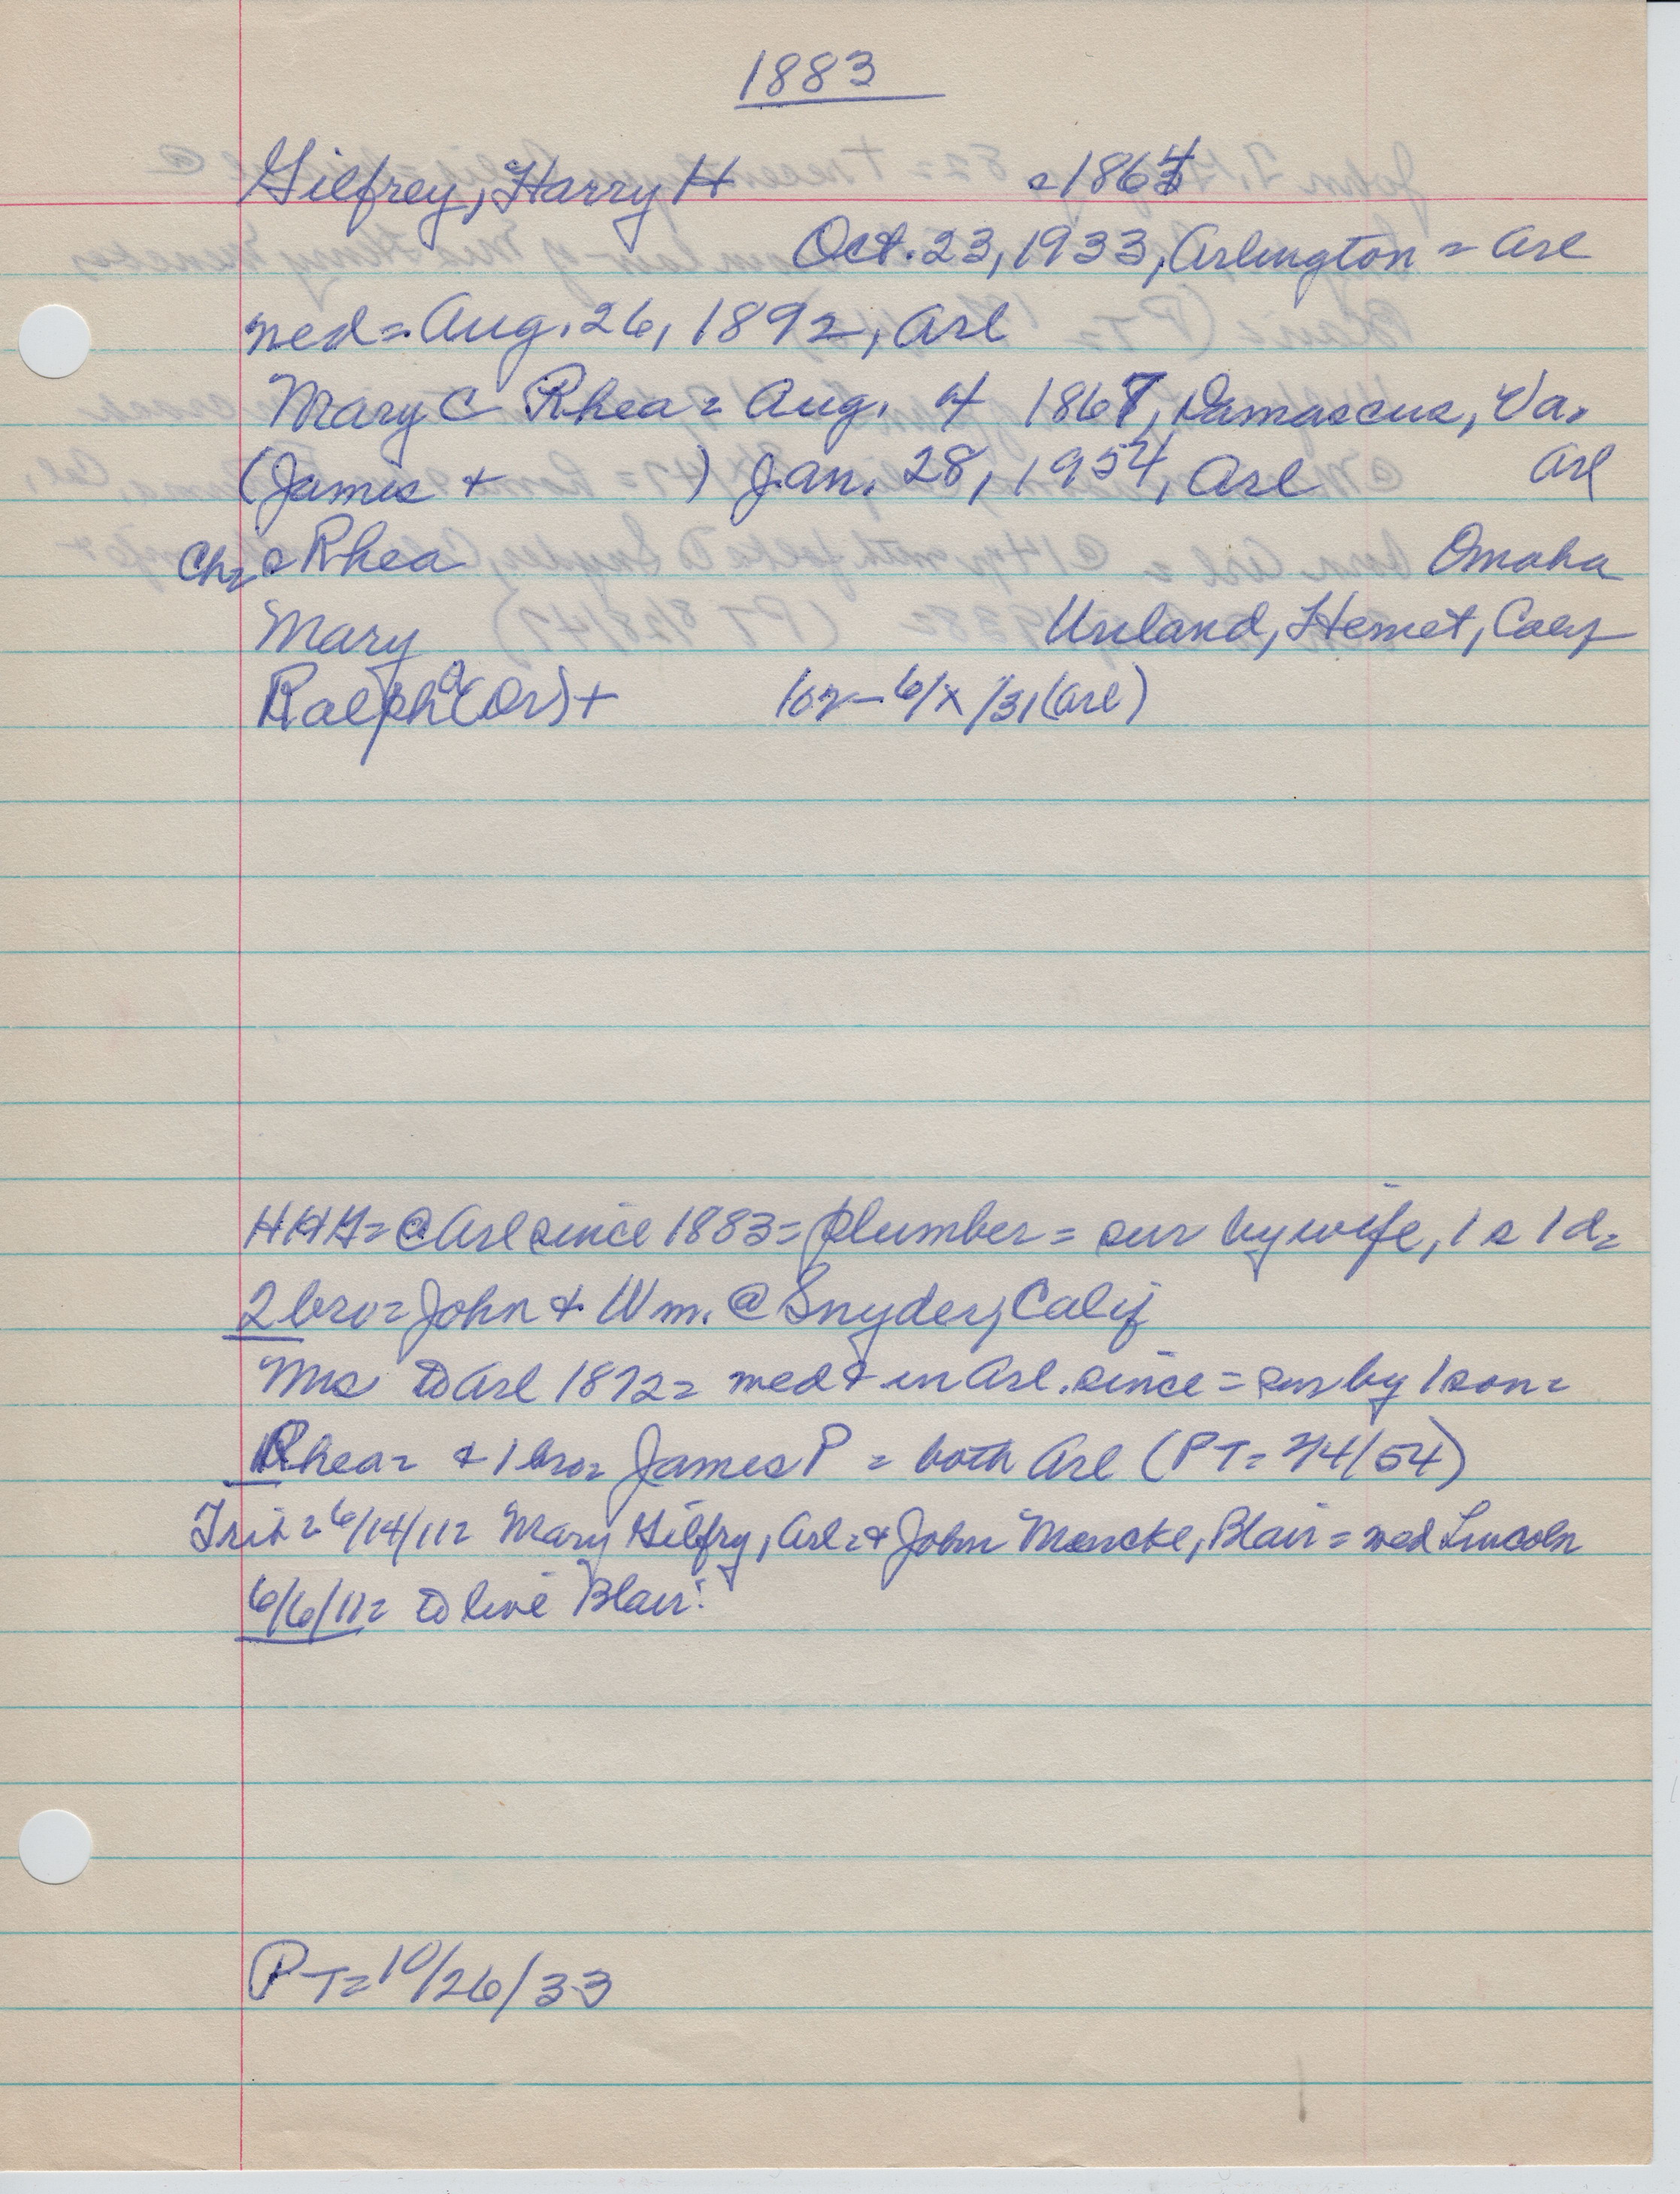 1883
Gilfrey, Harry H = 1864
Oct. 23, 1933, Arlington = Arl
med = Aug. 26, 1892, Arl
Mary C Rhea = Aug. 4 1867, Damascus, Va.
(James + ) Jan. 28, 1954, Arl Arl
Ch = Rhea Omaha
Mary Unland, Hemet, Calif
Ralph (Dr) + 6/x/31 (Arl)
HHG = @ Arl since 1883 = plumber = sur by wife, 1 s 1 d =
2 bro = John & Wm. @ Snyder, Calif
Mrs to Arl 1872 = med & in Arl. since = sur by 1 son =
Rhea = & 1 bro = James P = both Arl (PT = 2/4/54)
Trib = 6/14/11 = Mary Gilfry, Arl = & John Mencke, Blair = med Lincoln
6/6/11 = to live Blair.
PT = 10/26/33